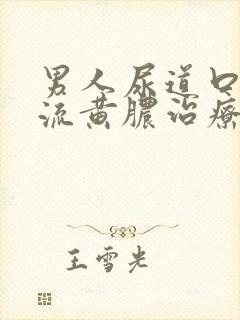 男人尿道口
流黄脓治疗
王雪光